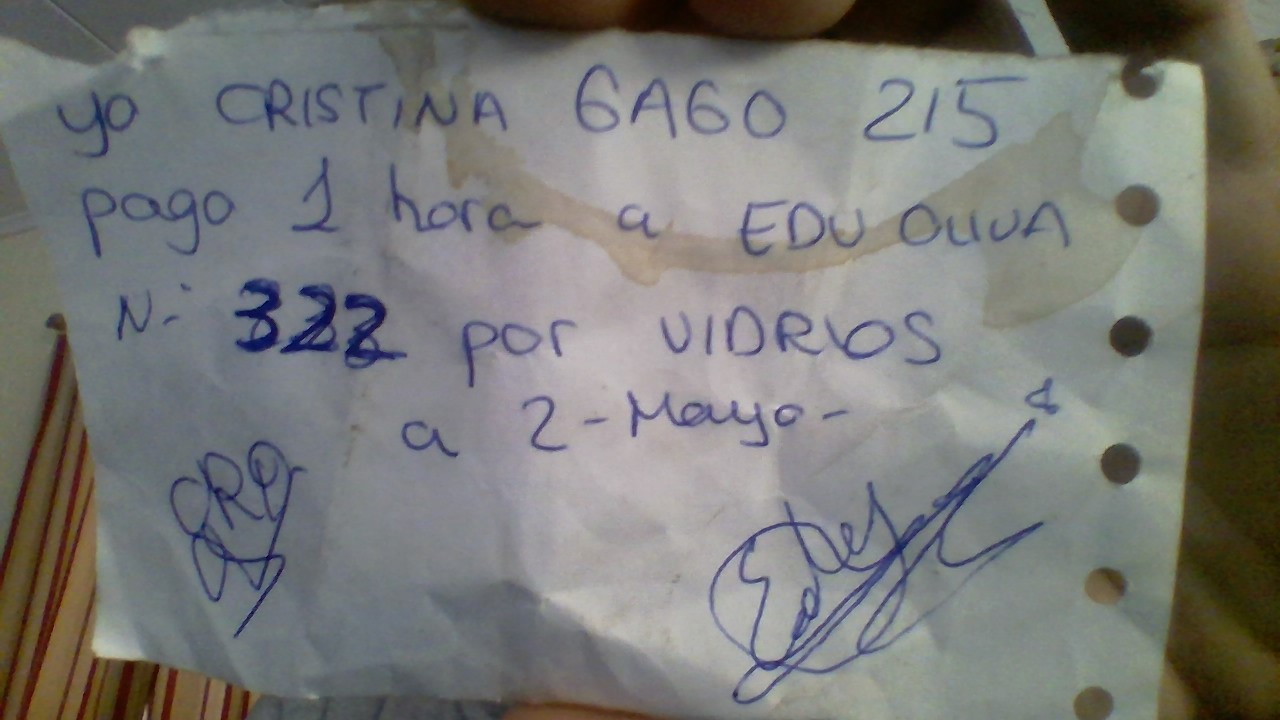 yo CRISTINA GAGO 215
pago 1 hora a EDU OLIVA
N.: 322 por VIDRIOS
a 2-Mayo-